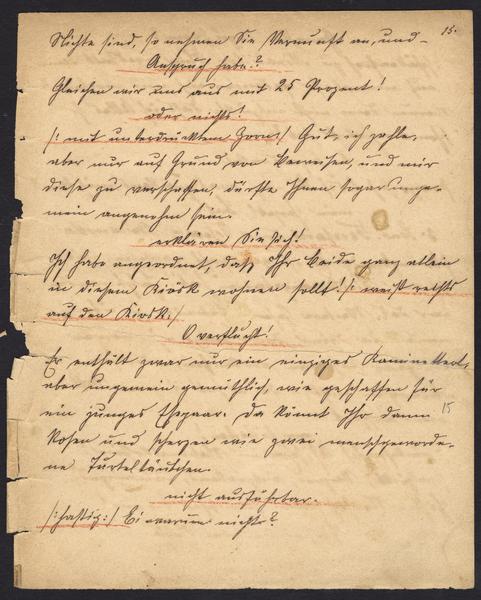 15.
Nichte sind, so nehmen Sie Vernunft an, und –
Anspruch habe?
Gleichen wir uns aus mit 25 Prozent!
oder nichts!
/: mit unterdrücktem Zorn :/ Gut, ich zahle,
aber nur auf Grund von Beweisen, und mir
diese zu verschaffen, dürfte Ihnen sogar unge-
mein angenehm sein.
erklären Sie sich!
Ich habe angeordnet, daß Ihr beide ganz allein
in diesem Kiosk wohnen sollt! /: weist rechts
auf den Kiosk :/
O verflucht!
Er enthält zwar nur ein einziges
aber ungemein gemüthlich, wie geschaffen für
ein junges Ehepaar. Da könnt Ihr dann
15
kosen und scherzen wie zwei menschgeworde-
ne Turteltäubchen.
nicht ausführbar.
/: hastig :/ Ei warum nicht?